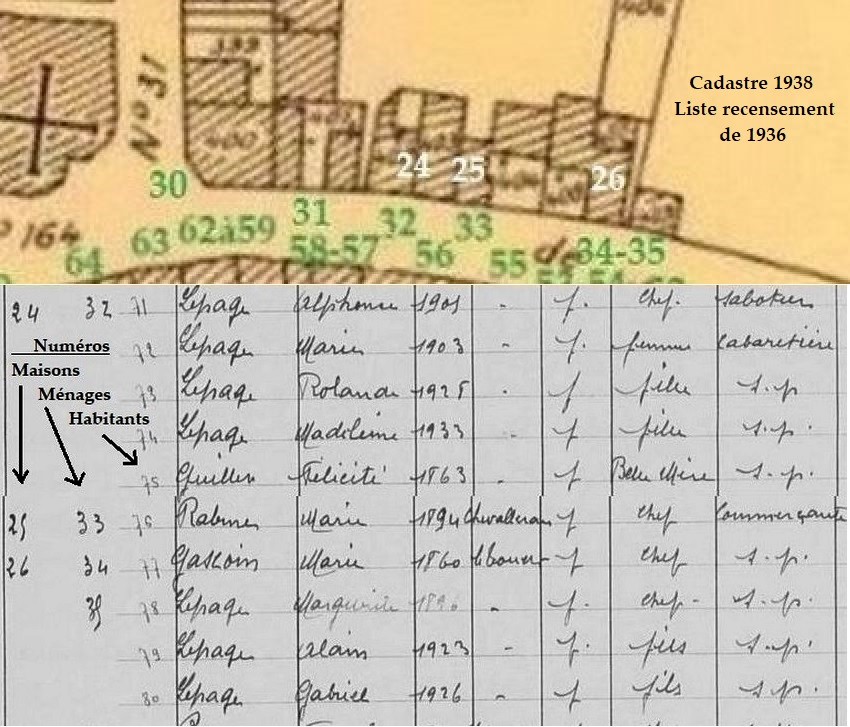 406
399
Cadastre 1938
Liste recensement
de 1936
N° 13
400
24 25 26
30
31 32 33 34-35
° 164
64 63 62à59 58-57 56 55 de
24 32 71 Lepage Alphonse 1901 - f. chef. sabotier
Numéros
Maisons
Ménages
Habitants
72 Lepage Marie 1903 - f. femme Cabaretière
73 Lepage Rolande 1925 . f fille s.p
74 Lepage Madeleine 1933 - f fille s.p.
75 Guillou Félicité 1863 - f Belle Mère s.p.
25 33 76 Marie 1894 f chef Commerçante
26 34 77 Gascoin Marie 1860 f chef s.p.
35 78 Lepage Marguerite 1896 - f. chef - s.p.
79 Lepage Alain 1923 - f. fils s.p.
80 Lepage Gabriel 1926 - f fils s.p.